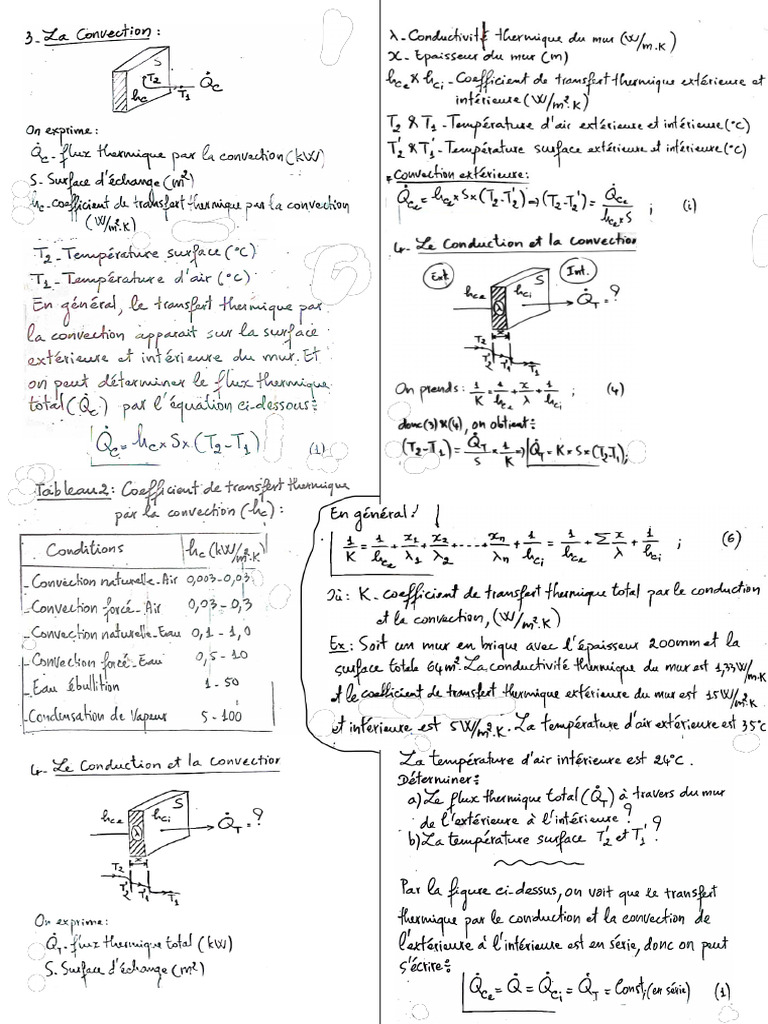 3_ La Convection :
S
T2
hc
T1
Q̇c
On exprime :
Q̇c - flux thermique par la convection (kW)
S - Surface d'échange (m²)
hc - coefficient de transfert thermique par la convection
(W/m².K)
T2 - Température surface (°C)
T1 - Température d'air (°C)
En général, le transfert thermique par
la convection apparait sur la surface
extérieure et intérieure du mur. Et
on peut déterminer le flux thermique
total (Q̇c) par l'équation ci-dessous :
Q̇c = hc x S x (T2 - T1) (1)
Tableau 2 : Coefficient de transfert thermique
par la convection (hc) :
Conditions hc (kW/m².K)
- Convection naturelle - Air 0,003 - 0,03
- Convection forcé - Air 0,03 - 0,3
- Convection naturelle - Eau 0,1 - 1,0
- Convection forcé - Eau 0,5 - 10
- Eau ébullition 1 - 50
- Condensation de Vapeur 5 - 100
4_ Le Conduction et la convection
S
hce
hci
λ
Q̇T = ?
x
T2
T'2 T'1 T1
On exprime :
Q̇T - flux thermique total (kW)
S. Surface d'échange (m²)
λ - Conductivité thermique du mur (W/m.K)
x - Epaisseur du mur (m)
hce & hci - Coefficient de transfert thermique extérieure et
intérieure (W/m².K)
T2 & T1 - Température d'air extérieure et intérieure (°C)
T'2 & T'1 - Température surface extérieure et intérieure (°C)
* Convection extérieure :
Q̇ce = hce x S x (T2 - T'2) ⇒ (T2 - T'2) = Q̇ce / hce x S ; (i)
4_ Le Conduction et la convection
Ext. Int.
S
hce
hci
λ
Q̇T = ?
x
T2
T'2 T'1 T1
On prends : 1/K = 1/hce + x/λ + 1/hci ; (4)
donc (3) & (4), on obtient :
(T2 - T1) = Q̇T/S x 1/K ⇒ Q̇T = K x S x (T2 - T1) ;
En général :
1/K = 1/hce + x1/λ1 + x2/λ2 + ... + xn/λn + 1/hci = 1/hce + Σ x/λ + 1/hci ; (6)
Où : K - coefficient de transfert thermique total par le conduction
et la convection, (W/m².K)
Ex : Soit un mur en brique avec l'épaisseur 200mm et la
surface totale 64m². La conductivité thermique du mur est 1,33W/m.K
et le coefficient de transfert thermique extérieure du mur est 15W/m².K
et intérieure est 5W/m².K. La température d'air extérieure est 35°C
La température d'air intérieure est 24°C.
Déterminer :
a) Le flux thermique total (Q̇T) à travers du mur
de l'extérieure à l'intérieure ?
b) La température surface T'2 et T'1 ?
Par la figure ci-dessus, on voit que le transfert
thermique par le conduction et la convection de
l'extérieure à l'intérieure est en série, donc on peut
s'écrire :
Q̇ce = Q̇ = Q̇ci = Q̇T = Const ; (en série) (1)